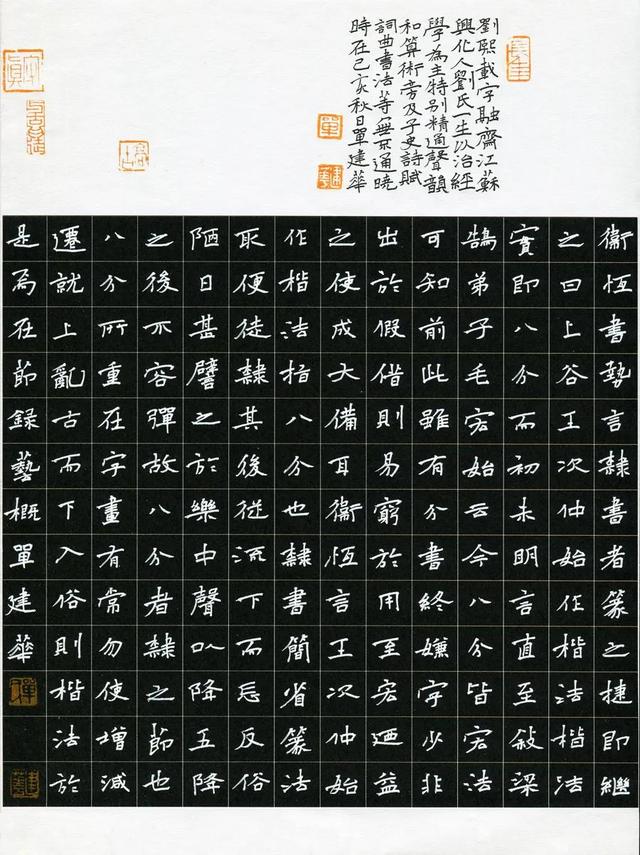 劉熙載字融齋江蘇
興化人劉氏一生以治經
學為主特别精通聲韻
和算術旁及子史詩賦
詞曲書法等無不通曉
時在己亥秋日單建華
單
建華
衞恆書勢言隸書者篆之捷即繼
之曰上谷王次仲始作楷法楷法
實即八分而初未明言直至敍梁
鵠弟子毛宏始云今八分皆宏法
可知前此雖有分書終嫌字少非
出於假借則易窮於用至宏迺益
之使成大備耳衞恆言王次仲始
作楷法指八分也隸書簡省篆法
取便徒隸其後從流下而忘反俗
陋日甚譬之於樂中聲以降五降
之後不容彈故八分者隸之節也
八分所重在字畫有常勿使增減
遷就上亂古而下入俗則楷法於
是為在節録藝概單建華
單
建華